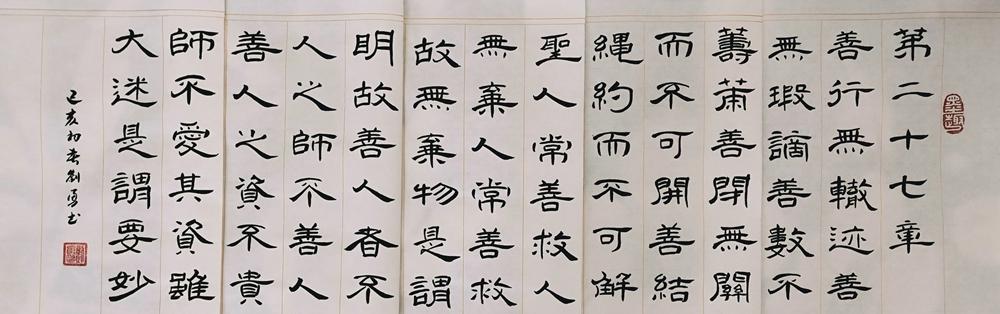 第二十七章
善行無轍迹善
無瑕謫善數不
籌策善閉無關
而不可開善結
縄約而不可解
聖人常善救人
無棄人常善救
故無棄物是謂
明故善人者不
人之師不善人
善人之資不貴
師不愛其資雖
大迷是謂要妙
己亥初春劉勇书